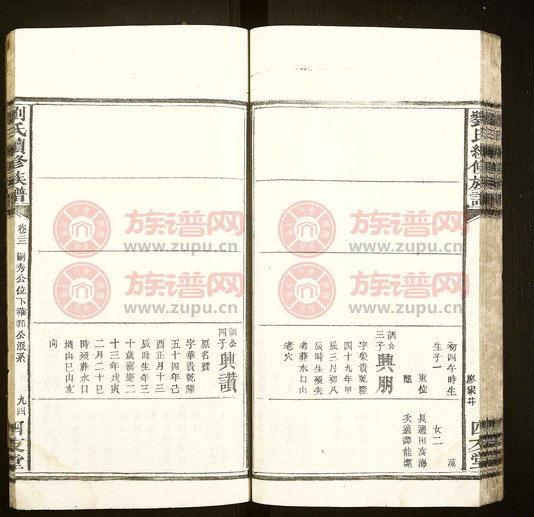 劉氏續修族譜
初四午時生
生子一
女二
長適田萬海
東位
訓公三子興朋
字榮貴乾隆
四十九年甲
辰三月初八
辰時生歿失
考葬水口山
老穴
訓公四子興讚
原名贊
字華貴乾隆
五十四年己
酉正月十三
辰時生年三
十歲嘉慶二
十三年戊寅
二月二十巳
時歿葬水口
坡山巳山亥
向
劉氏續修族譜
卷三
嗣秀公位下華郭公派系
九四
四友堂
族谱网
www.zupu.cn
族谱网
www.zupu.cn
族谱网
www.zupu.cn
族谱网
www.zupu.cn